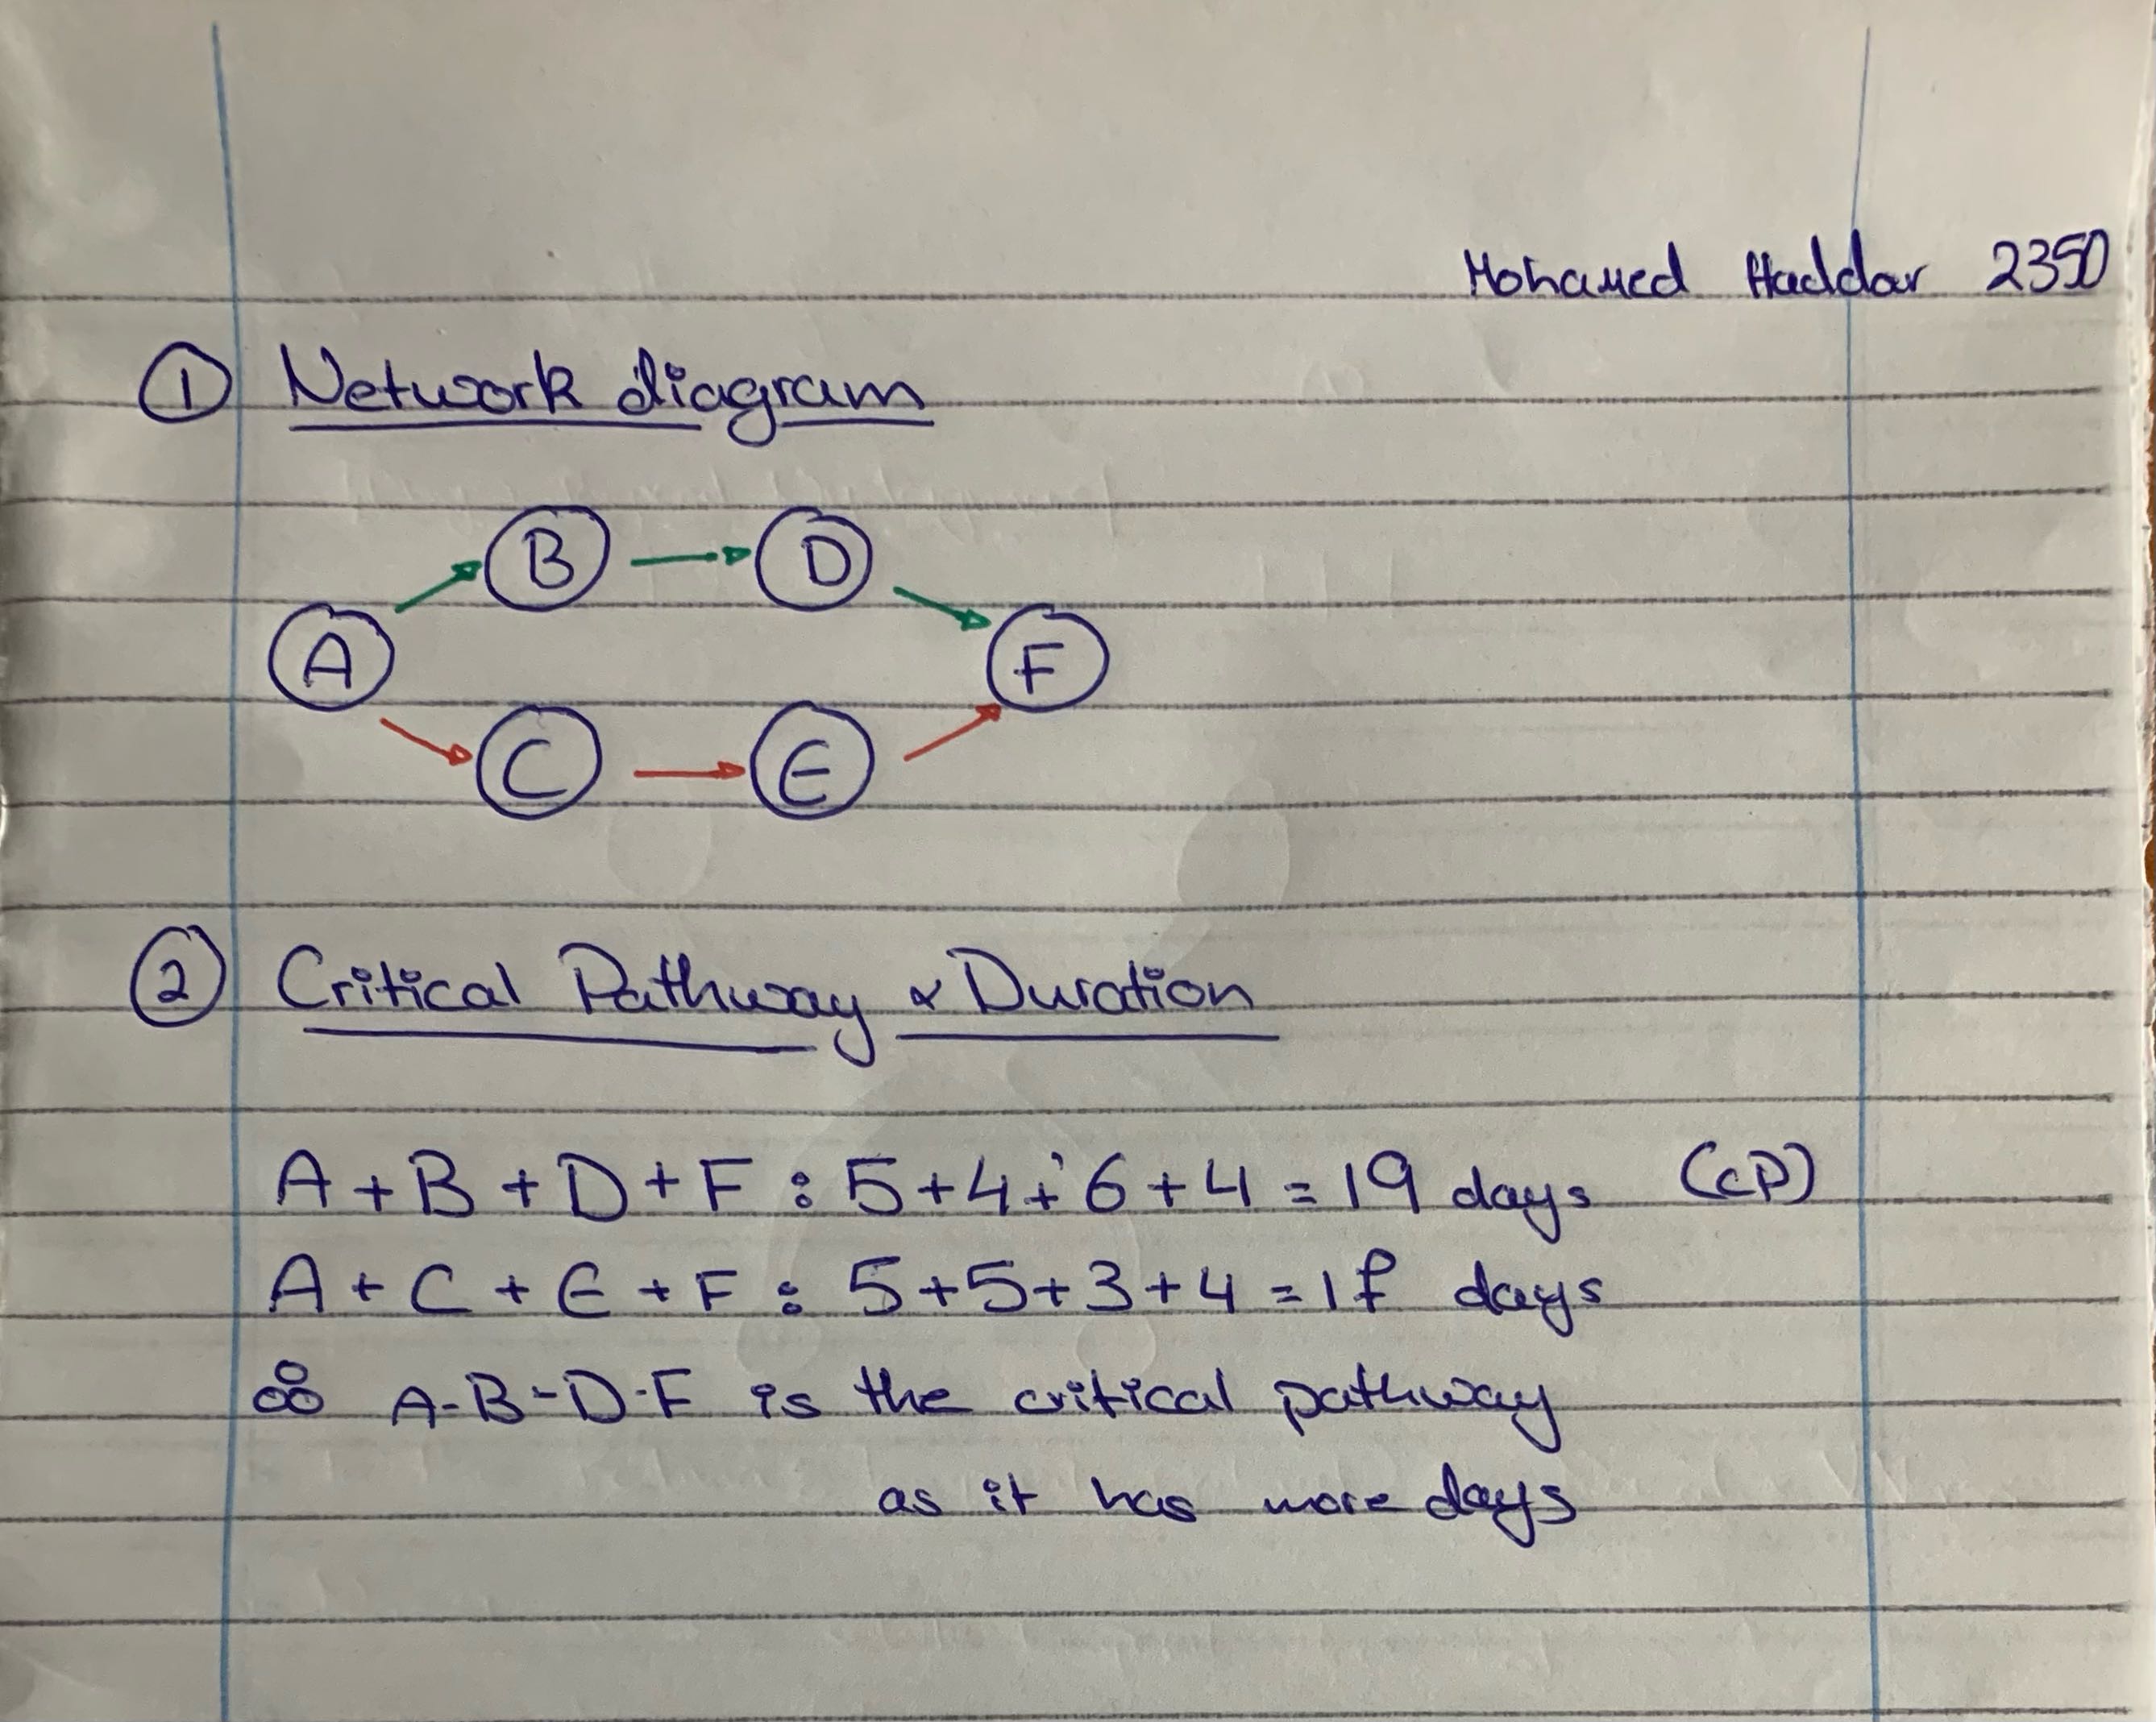 Mohamed Haddar 2350
① Network diagram
B → D
A F
C → E
② Critical Pathway & Duration
A + B + D + F : 5 + 4 + 6 + 4 = 19 days (CP)
A + C + E + F : 5 + 5 + 3 + 4 = 17 days
∴ A-B-D-F is the critical pathway
as it has more days